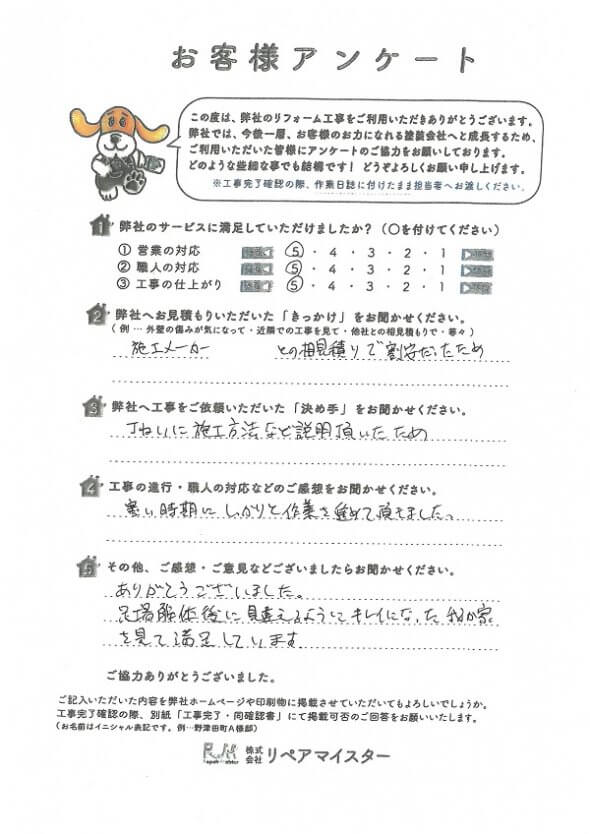 お客様アンケート
この度は、弊社のリフォーム工事をご利用いただきありがとうございます。
弊社では、今後一層、お客様のお力になれる塗装会社へと成長するため、
ご利用いただいた皆様にアンケートのご協力をお願いしております。
どのような些細な事でも結構です！どうぞよろしくお願い申し上げます。
※工事完了確認の際、作業日誌に付けたまま担当者へお渡しください。
1 弊社のサービスに満足していただけましたか？（〇を付けてください）
① 営業の対応 5・4・3・2・1
② 職人の対応 5・4・3・2・1
③ 工事の仕上がり 5・4・3・2・1
2 弊社へお見積もりいただいた「きっかけ」をお聞かせください。
（例…外壁の傷みが気になって・近隣での工事を見て・他社との相見積もりで・等々）
施工メーカー との相見積りで割安だったため
3 弊社へ工事をご依頼いただいた「決め手」をお聞かせください。
丁ねいに施工方法など説明頂いたため
4 工事の進行・職人の対応などのご感想をお聞かせください。
寒い時期にしっかりと作業を進めて頂きました。
5 その他、ご感想・ご意見などございましたらお聞かせください。
ありがとうございました。
足場解体後に見違えるようにキレイになった我が家
を見て満足しています。
ご協力ありがとうございました。
ご記入いただいた内容を弊社ホームページや印刷物に掲載させていただいてもよろしいでしょうか。
工事完了確認の際、別紙「工事完了・同確認書」にて掲載可否のご回答をお願いいたします。
（お名前はイニシャル表記です。例…野津田町A様邸）
株式会社 リペアマイスター